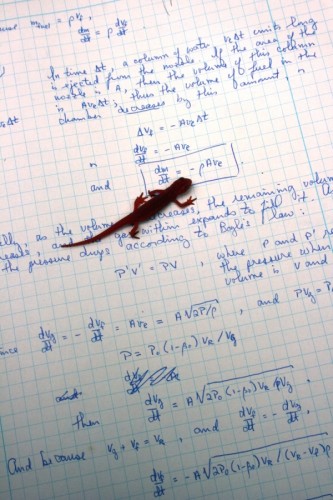 m = ρ V_f ,
dm/dt = ρ dV_f/dt
In time Δt, a column of water v_e Δt units long
is ejected from the nozzle. If the area of the
nozzle is A, then the volume of this column
is A v_e Δt, thus the volume of fuel in the
chamber decreases by this amount, n
v_e Δt
ΔV_f = - A v_e Δt
n dV_f/dt = - A v_e
and dm/dt = - ρ A v_e
as the volume decreases, the remaining volum
and the gas within expands to fill it.
the pressure drops according to Boyle's law:
P'V' = PV , where P and P'
the pressure when
volume is V and
since dV_g/dt = - dV_f/dt = A v_e = A √2P/ρ , and P V_g = P
P = P_0 (1-β_0) V_R / V_g
then dV_g/dt = A √2P_0 (1-β_0) V_R / ρ V_g
And because V_g + V_f = V_R , and dV_g/dt = - dV_f/dt ,
dV_f/dt = - A √2P_0 (1-β_0) V_R / (V_R - V_f) ρ